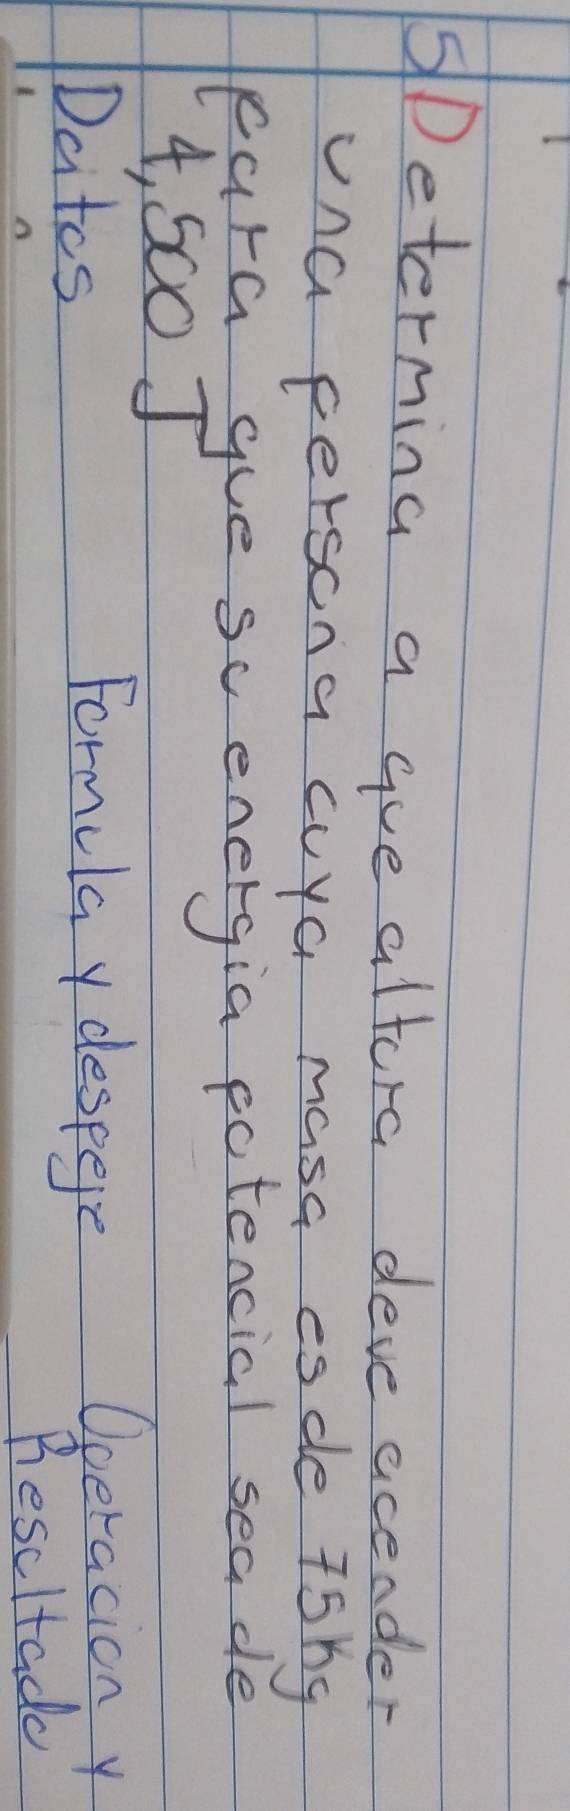 5 Determina a que altura deve acender
una persona cuya masa es de 75kg
para que su energia potencial sea de
4,500 J
Datos Formula y despeje Operacion y
Resultado